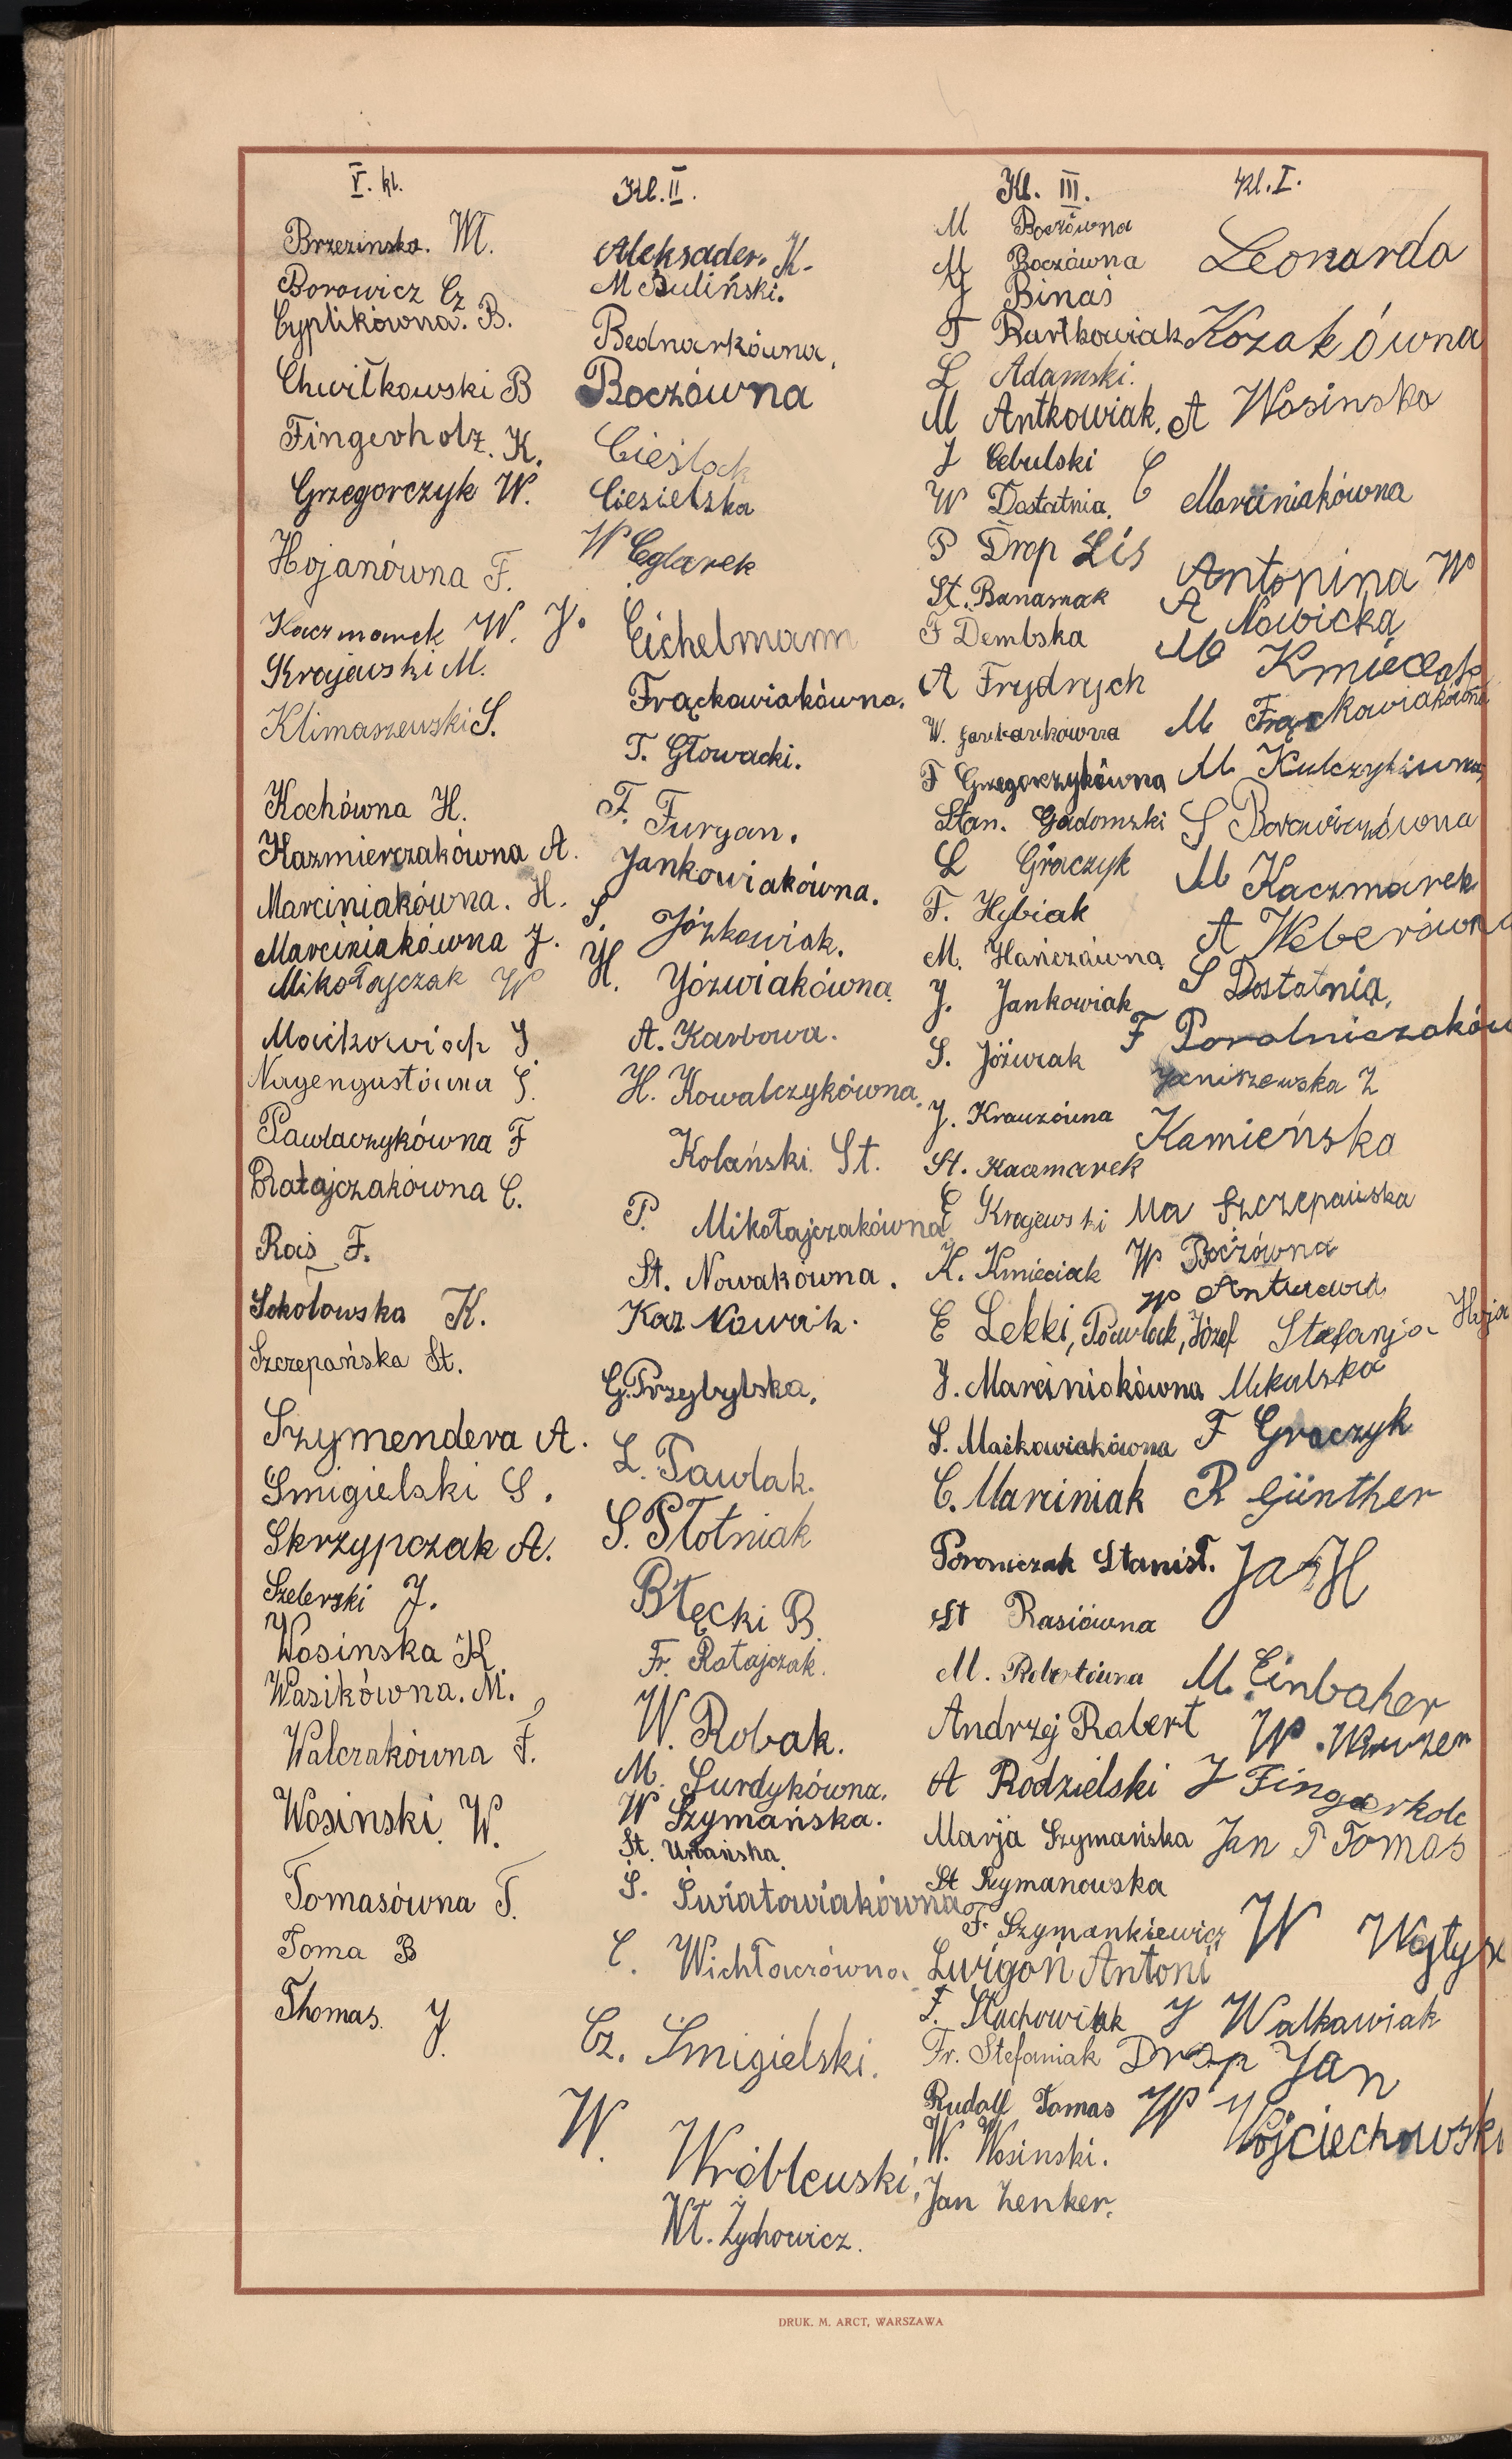 V. kl.
Brzezinska. M.
Borowicz Cz
Cyplikówna. B.
Chwiłkowski B
Fingerholz. K.
Grzegorczyk W.
Hojanówna F.
Kaczmarek W.
Krajewski M.
Klimaszewski S.
Kochówna H.
Kazmierczakówna A.
Marciniakówna. H.
Marciniakówna J.
Mikołajczak W
Maćkowiak S
Nagengastówna S.
Pawlaczykówna F
Ratajczakówna C.
Raiś F.
Sokołowska K.
Szczepańska St.
Szymendera A.
Śmigielski S.
Skrzypczak A.
Szelerski J.
Wosinska K
Wasikówna. M.
Walczakówna F.
Wosinski W.
Tomasówna T.
Toma B
Thomas. J.
Kl. II.
Aleksader. K.
M Buliński.
Bednarkówna.
Boczówna
Cieślak
Ciesielska
W Ceglarek
J. Eichelmann
Frąckowiakówna.
T. Głowacki.
F. Furgan.
Jankowiakówna.
S. Józkowiak.
H. Józwiakówna
A. Karbowa.
H. Kowalczykówna.
Kolański. St.
P. Mikołajczakówna
St. Nowakówna.
Kaz Nowak.
G. Przybylska.
L. Pawlak.
S. Płotniak
Błęcki B.
Fr. Ratajczak.
W. Robak.
M. Surdykówna.
W Szymańska.
St. Urbańska.
S. Światowiakówna
C. Wichłaczówna
Cz. Śmigielski.
W. Wróblewski.
Wł. Żychowicz.
Kl. III.
M Boczówna
M Boczówna
J Binaś
T Bartkowiak
L Adamski.
M Antkowiak.
J Cebulski
W Dostatnia.
P Drop Lis
St. Banaszak
F Dembska
A Frydrych
W. Garbarkówna
F Grzegorzykówna
Stan. Gadomski
L Graczyk
F. Hybiak
M. Hańczówna
J. Jankowiak
S. Jóźwiak
J. Krauzówna
St. Kaczmarek
C Krajewski
K. Kmieciak
E Lekki, Pawlak, Józef
J. Marciniakówna
S. Maćkowiakówna
C. Marciniak
Poroniczak Stanisł.
St Rasiówna
M. Robertówna
Andrzej Robert
A Rodzielski
Marja Szymańska
St Szymanowska
F. Szymankiewicz
Świgoń Antoni
F. Stachowiak
Fr. Stefaniak
Rudolf Tomas
W. Wosinski.
Jan Zenker.
Kl. I.
Leonarda
Kozakówna
A Wosinska
C Marciniakówna
Antonina W
A Nowicka
M Kmieciak
M Frąckowiakówna
M. Kulczykówna
S Borowiczówna
M Kaczmarek
A Weberówna
S Dostatnia,
F
Janiszewska Z
Kamieńska
Ma Szczepańska
W Boczówna
W
Stefanja Hoja
Mikulska
F Graczyk
R Günther
M. Einbaher
W.
J Fingerhole
Jan P Tomas
W Wojtysz
J Walkawiak
Drop Jan
W Wojciechowski
DRUK. M. ARCT, WARSZAWA